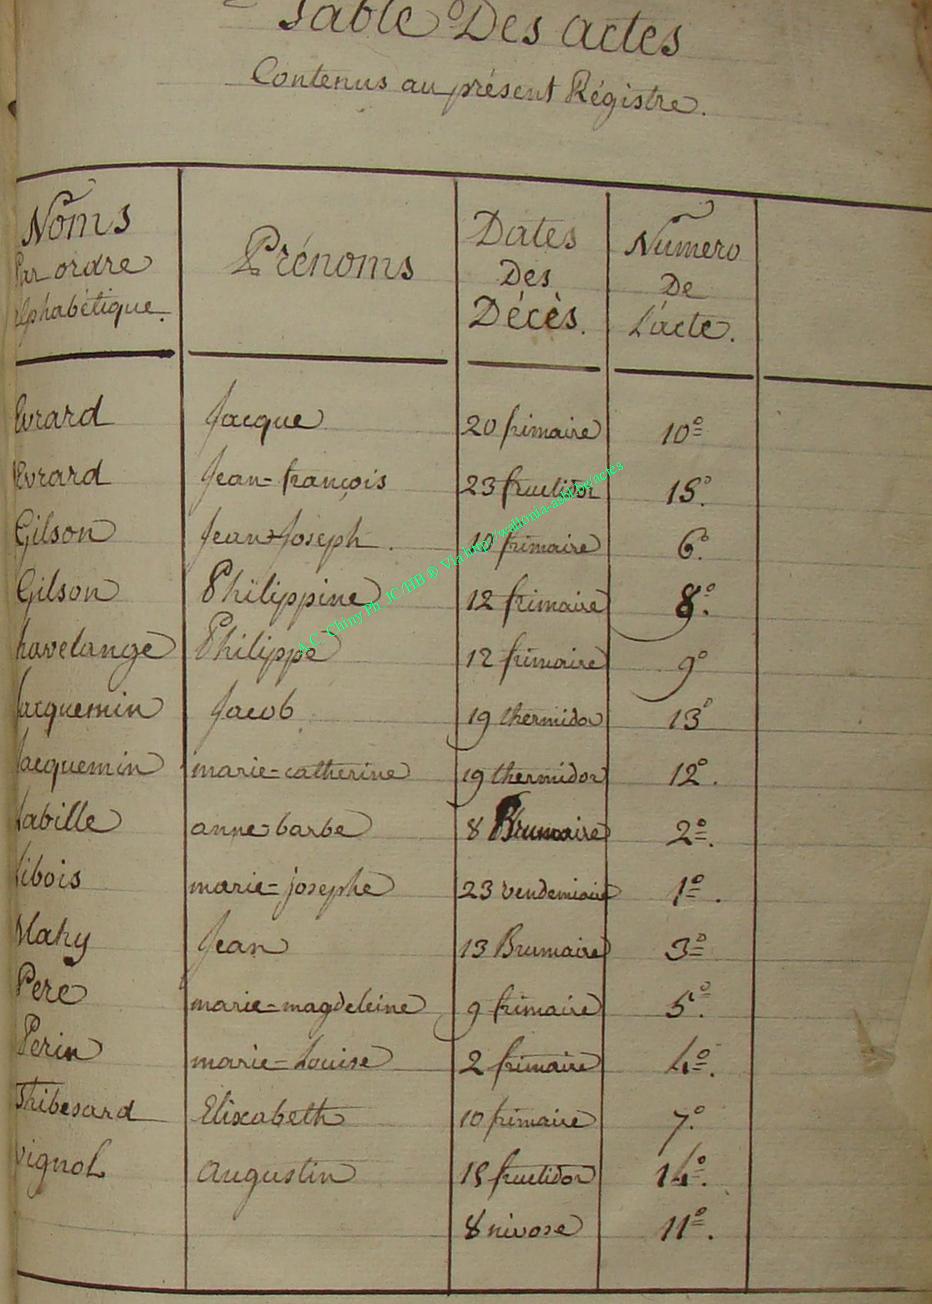 Table Des actes
Contenus au présent Régistre.
Noms Par ordre alphabétique. Prénoms Dates Des Décès. Numero De L'acte.
Evrard Jacque 20 frimaire 10º
Evrard Jean-françois 23 fructidor 15º
Gilson Jean-Joseph. 10 frimaire 6º
Gilson Philippine 12 frimaire 8º
havelange Philippe 12 frimaire 9º
Jacquemin Jacob 19 thermidor 13º
Jacquemin marie-catherine 19 thermidor 12º.
Labille anne barbe 8 Brumaire 2º.
Libois marie-josephe 23 vendemiaire 1º.
Mahy Jean 13 Brumaire 3º
Pere marie-magdeleine 9 frimaire 5º.
Perin marie-Louise 2 frimaire 4º.
Thibesard Elixabeth 10 frimaire 7º.
vignol augustin 15 fructidor 14º.
8 nivose 11º.
A.C. Chiny Ph JC/HB © Via http://wallonia-asbl.be/actes